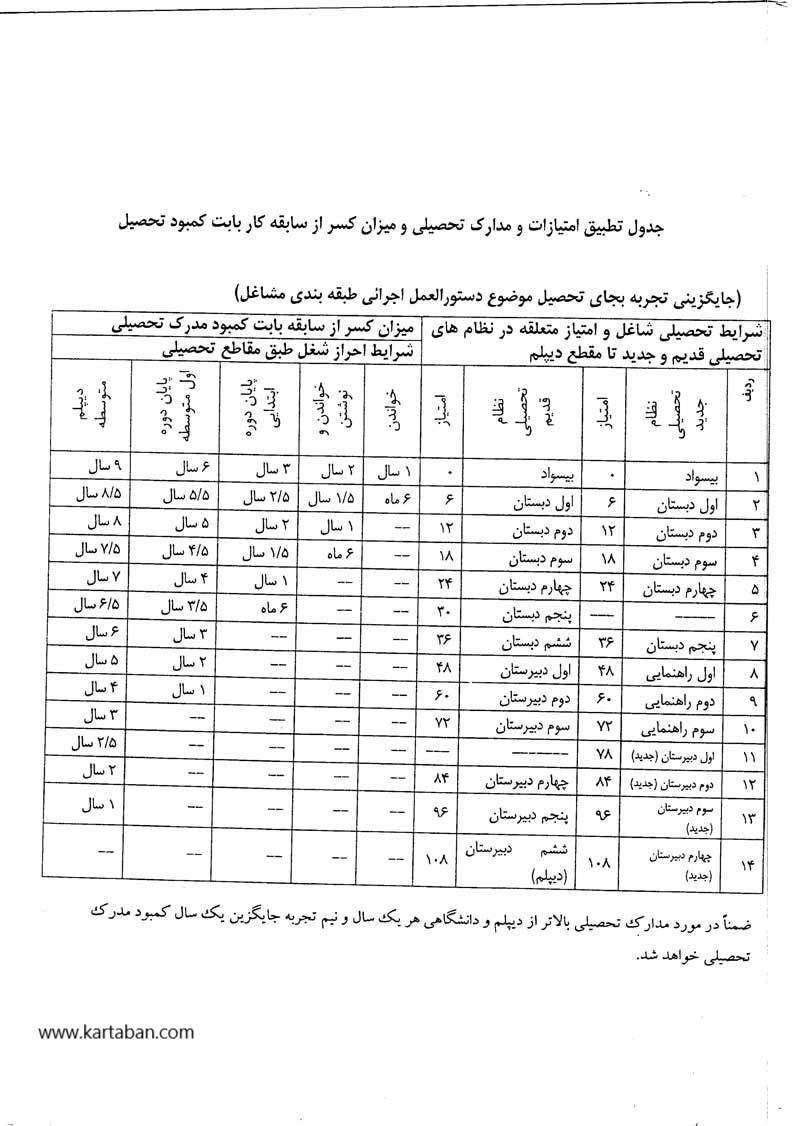 جدول تطبیق امتیازات و مدارک تحصیلی و میزان کسر از سابقه کار بابت کمبود تحصیل
(جایگزینی تجربه بجای تحصیل موضوع دستورالعمل اجرائی طبقه بندی مشاغل)
شرایط تحصیلی شاغل و امتیاز متعلقه در نظام های تحصیلی قدیم و جدید تا مقطع دیپلم
میزان کسر از سابقه بابت کمبود مدرک تحصیلی
شرایط احراز شغل طبق مقاطع تحصیلی
ردیف | نظام تحصیلی جدید | امتیاز | نظام تحصیلی قدیم | امتیاز | خواندن | خواندن و نوشتن | پایان دوره ابتدایی | پایان دوره اول متوسطه | دیپلم متوسطه
۱ | بیسواد | ۰ | بیسواد | ۰ | ۱ سال | ۲ سال | ۳ سال | ۶ سال | ۹ سال
۲ | اول دبستان | ۶ | اول دبستان | ۶ | ۶ ماه | ۱/۵ سال | ۲/۵ سال | ۵/۵ سال | ۸/۵ سال
۳ | دوم دبستان | ۱۲ | دوم دبستان | ۱۲ | -- | ۱ سال | ۲ سال | ۵ سال | ۸ سال
۴ | سوم دبستان | ۱۸ | سوم دبستان | ۱۸ | -- | ۶ ماه | ۱/۵ سال | ۴/۵ سال | ۷/۵ سال
۵ | چهارم دبستان | ۲۴ | چهارم دبستان | ۲۴ | -- | -- | ۱ سال | ۴ سال | ۷ سال
۶ | ------ | ---- | پنجم دبستان | ۳۰ | -- | -- | ۶ ماه | ۳/۵ سال | ۶/۵ سال
۷ | پنجم دبستان | ۳۶ | ششم دبستان | ۳۶ | -- | -- | -- | ۳ سال | ۶ سال
۸ | اول راهنمایی | ۴۸ | اول دبیرستان | ۴۸ | -- | -- | -- | ۲ سال | ۵ سال
۹ | دوم راهنمایی | ۶۰ | دوم دبیرستان | ۶۰ | -- | -- | -- | ۱ سال | ۴ سال
۱۰ | سوم راهنمایی | ۷۲ | سوم دبیرستان | ۷۲ | -- | -- | -- | -- | ۳ سال
۱۱ | اول دبیرستان (جدید) | ۷۸ | ------- | ---- | -- | -- | -- | -- | ۲/۵ سال
۱۲ | دوم دبیرستان (جدید) | ۸۴ | چهارم دبیرستان | ۸۴ | -- | -- | -- | -- | ۲ سال
۱۳ | سوم دبیرستان (جدید) | ۹۶ | پنجم دبیرستان | ۹۶ | -- | -- | -- | -- | ۱ سال
۱۴ | چهارم دبیرستان (جدید) | ۱۰۸ | ششم دبیرستان (دیپلم) | ۱۰۸ | -- | -- | -- | -- | --
ضمناً در مورد مدارک تحصیلی بالاتر از دیپلم و دانشگاهی هر یک سال و نیم تجربه جایگزین یک سال کمبود مدرک
تحصیلی خواهد شد.
www.kartaban.com